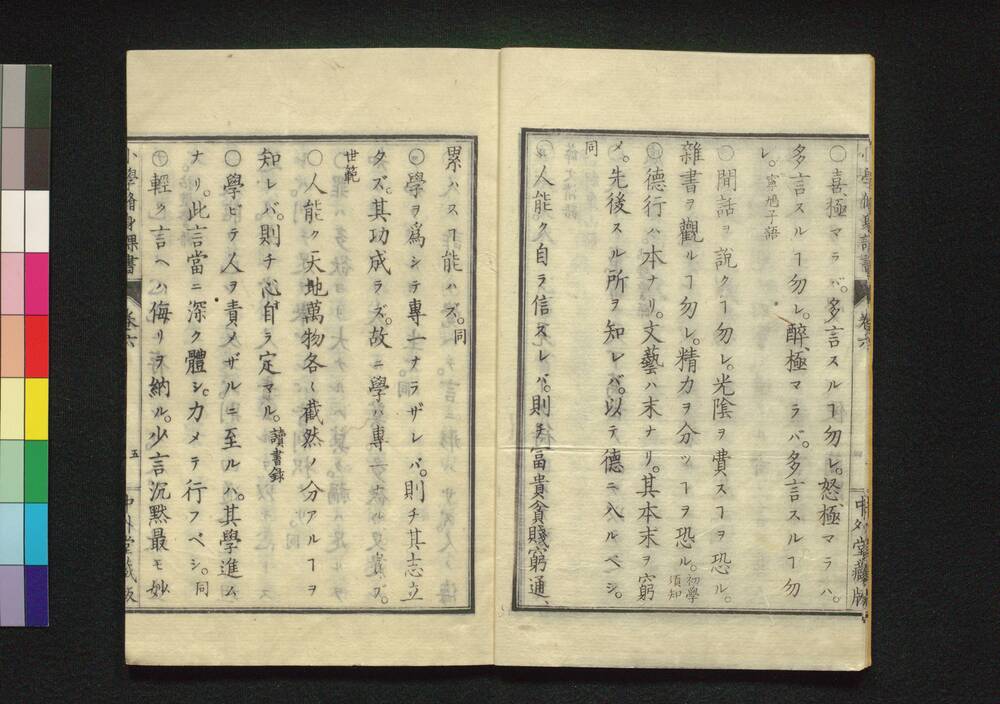 〇喜極マラバ。多言スルヿ勿レ。怒極マラハ。
多言スルヿ勿レ。醉極マラバ。多言スルヿ勿
レ。寧鳩子語
〇閒話ヲ說クヿ勿レ。光陰ヲ費スヿヲ恐ル。
雜書ヲ觀ルヿ勿レ。精力ヲ分ツヿヲ恐ル。初學須知
〇德行ハ本ナリ。文藝ハ末ナリ。其本末ヲ窮
メ。先後スル所ヲ知レバ。以テ德ニ入ルベシ。
同
〇人能ク自ラ信スレバ。則チ富貴貧賤窮通、
累ハスヿ能ハズ。同
〇學ヲ爲シテ專一ナラザレバ。則チ其志立
タズ。其功成ラズ。故ニ學ハ專一
世範
〇人能ク天地萬物各〻截然ノ分アルヿヲ
知レバ。則チ心自ラ定マル。讀書錄
〇學ビテ人ヲ責メザルニ至ルハ。其學進ム
ナリ。此言當ニ深ク體シ。力メテ行フベシ。同
〇輕ク言ヘハ侮リヲ納ル。少言沉默最モ妙
小學脩身課書
卷六
五
中外堂藏版